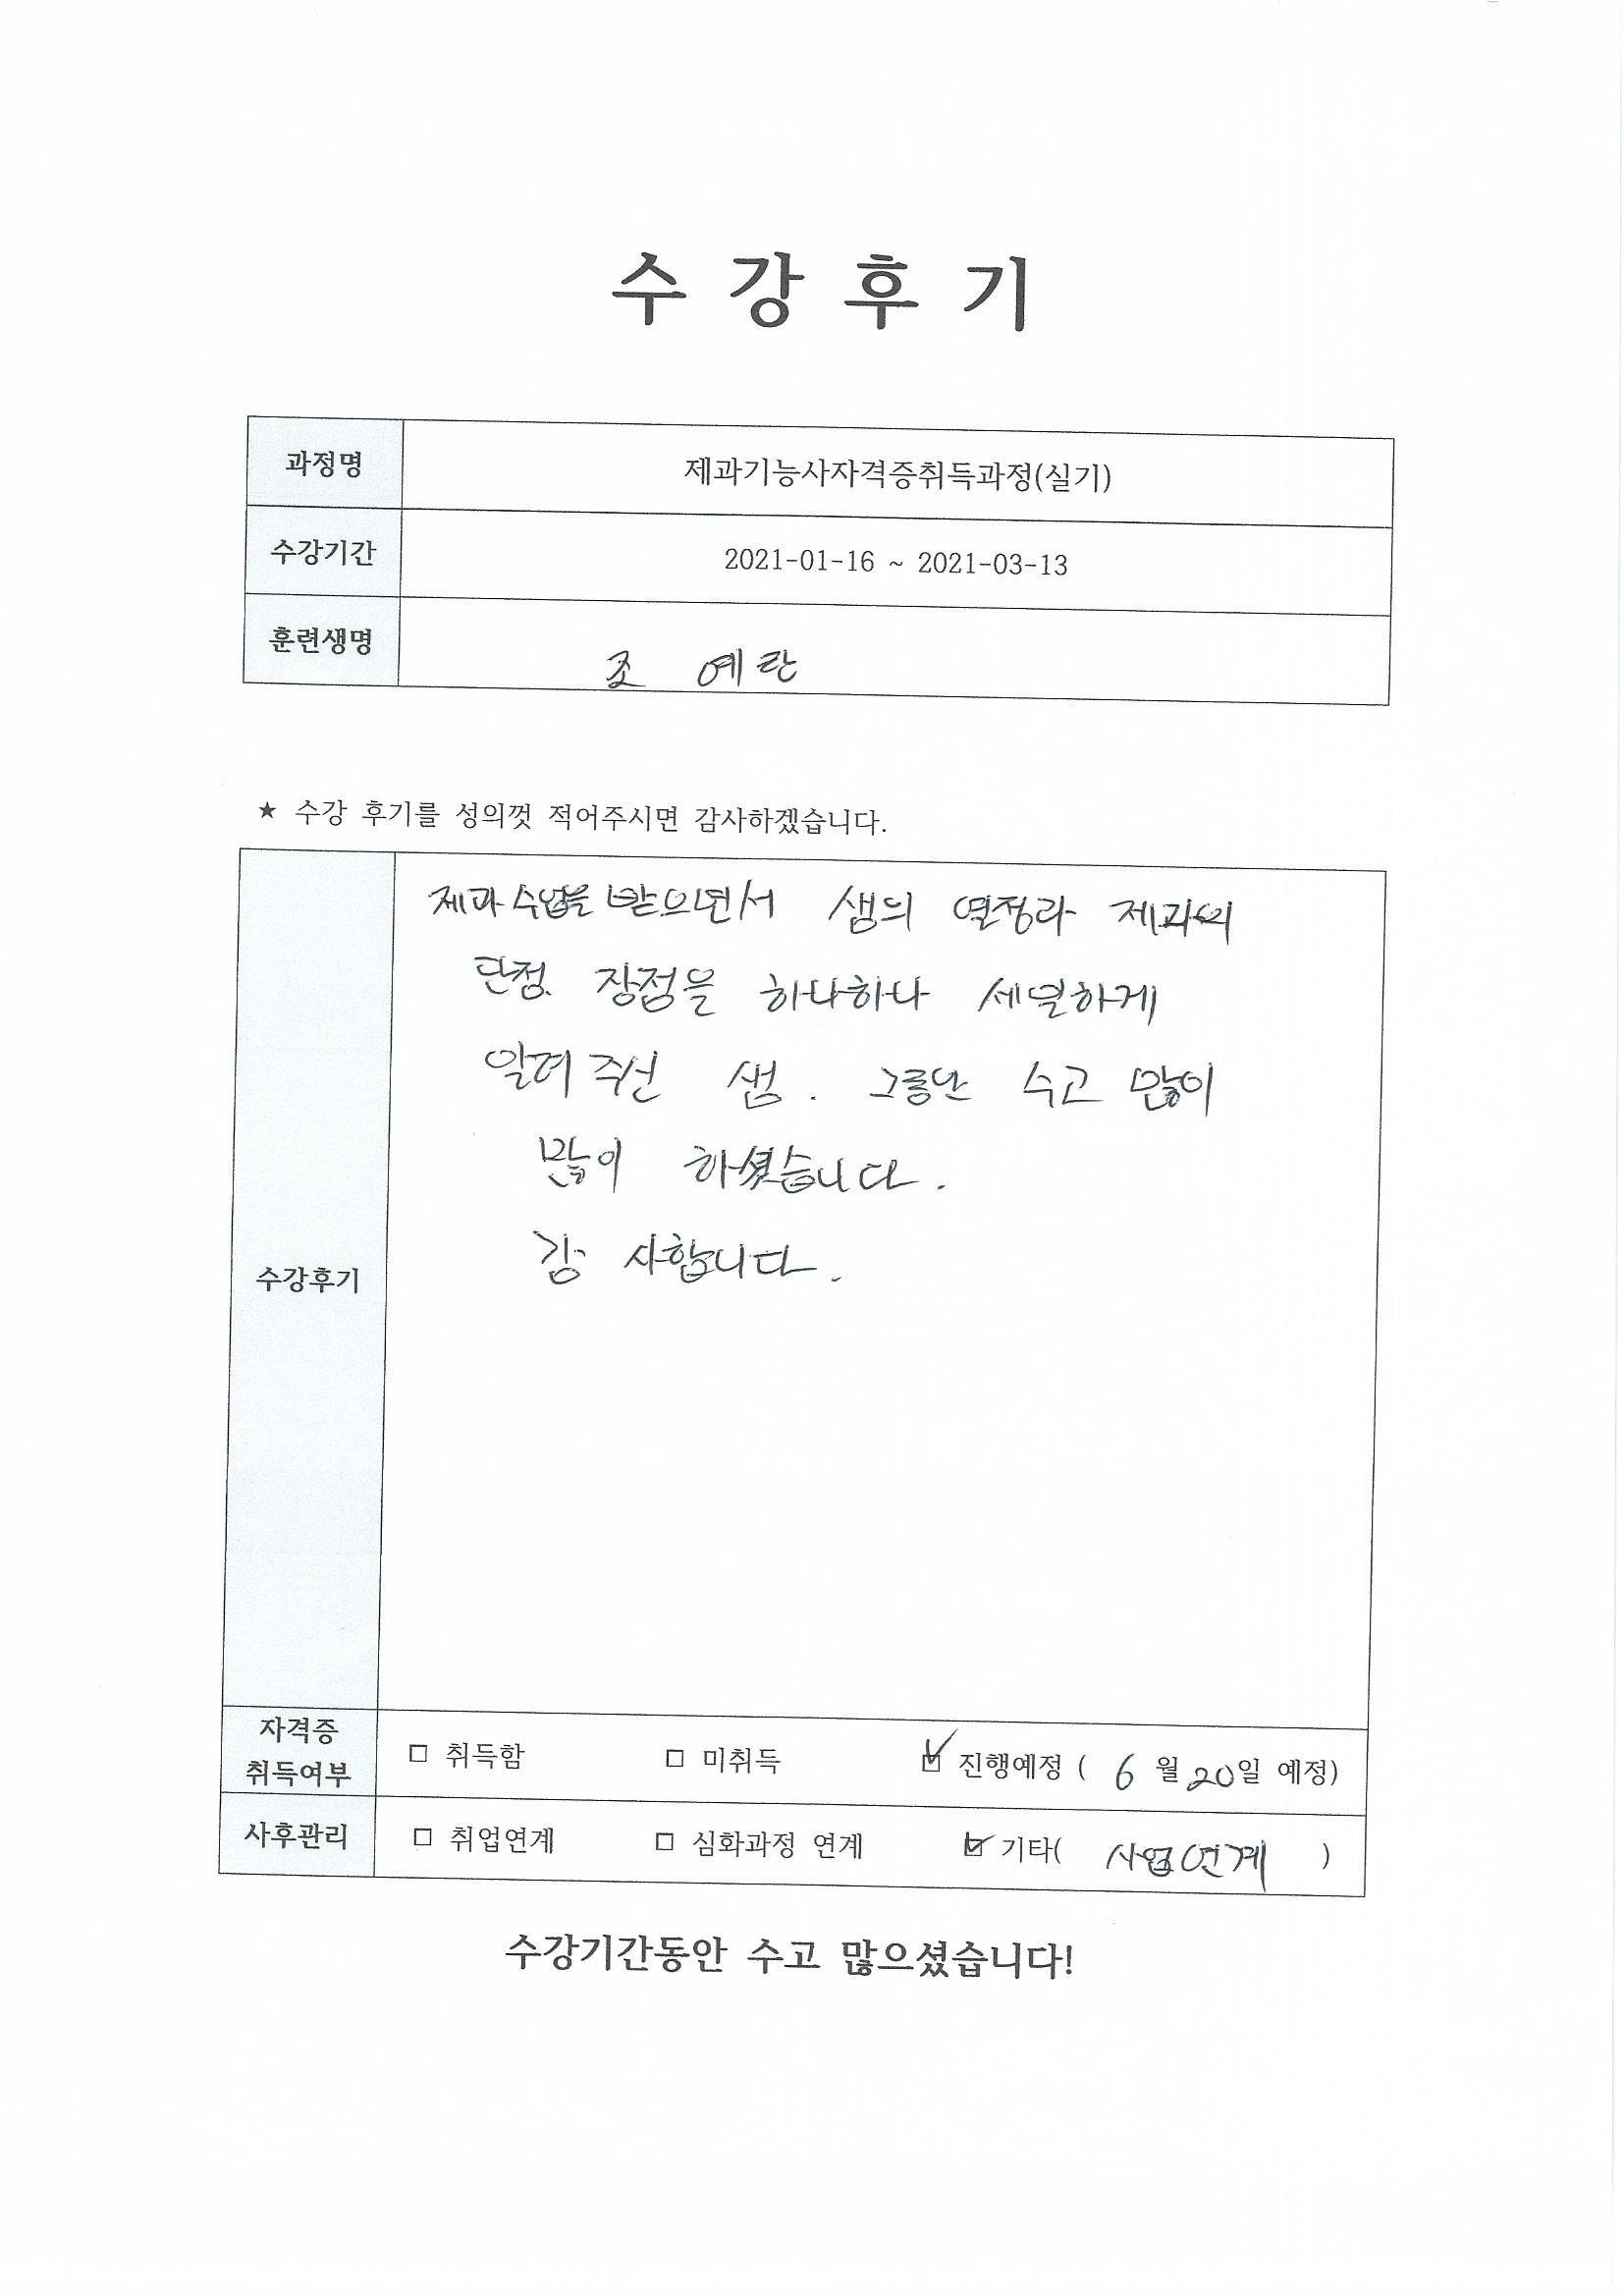 수 강 후 기
과정명 제과기능사자격증취득과정(실기)
수강기간 2021-01-16 ~ 2021-03-13
훈련생명 조 예란
★ 수강 후기를 성의껏 적어주시면 감사하겠습니다.
수강후기
제과 수업을 받으면서 샘의 열정과 제과의
단점. 장점을 하나하나 세밀하게
알려 주신 샘. 그동안 수고 많이
많이 하셨습니다.
감 사합니다.
자격증
취득여부
□ 취득함 □ 미취득 ☑ 진행예정 ( 6 월 20일 예정)
사후관리 □ 취업연계 □ 심화과정 연계 ☑ 기타( 사업연계 )
수강기간동안 수고 많으셨습니다!